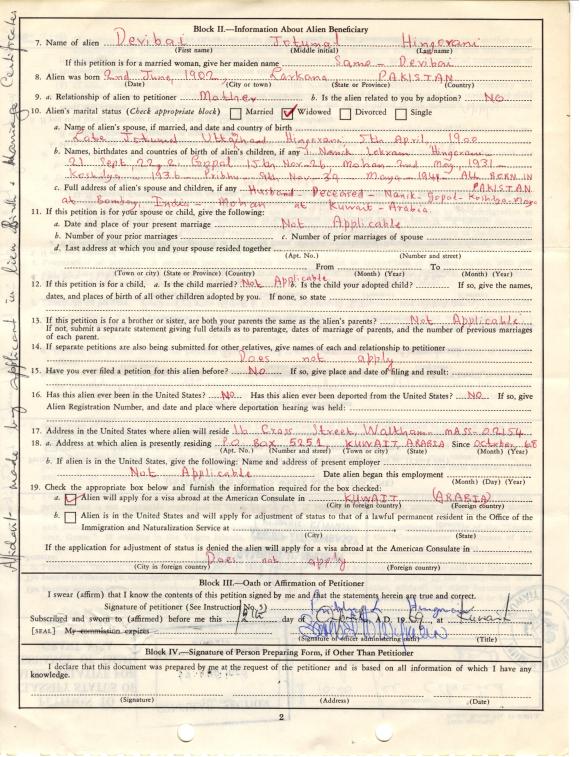 Affidavit made by applicant in lieu Birth & Marriage Certificates
Block II.—Information About Alien Beneficiary
7. Name of alien Devibai Jotumal Hingorani
(First name) (Middle initial) (Last name)
If this petition is for a married woman, give her maiden name Same - Devibai
8. Alien was born 2nd June, 1902, Larkana PAKISTAN
(Date) (City or town) (State or Province) (Country)
9. a. Relationship of alien to petitioner Mother b. Is the alien related to you by adoption? NO
10. Alien's marital status (Check appropriate block) Married Widowed Divorced Single
a. Name of alien's spouse, if married, and date and country of birth
Late Jotumal Hingorani 5th April, 1900
b. Names, birthdates and countries of birth of alien's children, if any 1. Nanik Hingorani -
21 Sept, 22, 2. Gopal 15th Nov. 26 Mohan 2nd May, 1931 -
1936 - 9th Nov. 39 Maya - 1944 - All BORN IN
PAKISTAN
c. Full address of alien's spouse and children, if any Husband - Deceased - Nanik - Gopal - Maya
at Bombay, India - Mohan at Kuwait - Arabia
11. If this petition is for your spouse or child, give the following:
a. Date and place of your present marriage Not Applicable
b. Number of your prior marriages c. Number of prior marriages of spouse
d. Last address at which you and your spouse resided together
(Apt. No.) (Number and street)
From To
(Town or city) (State or Province) (Country) (Month) (Year) (Month) (Year)
12. If this petition is for a child, a. Is the child married? Not Applicable b. Is the child your adopted child? If so, give the names,
dates, and places of birth of all other children adopted by you. If none, so state
13. If this petition is for a brother or sister, are both your parents the same as the alien's parents? Not Applicable
If not, submit a separate statement giving full details as to parentage, dates of marriage of parents, and the number of previous marriages
of each parent.
14. If separate petitions are also being submitted for other relatives, give names of each and relationship to petitioner
Does not apply
15. Have you ever filed a petition for this alien before? NO If so, give place and date of filing and result:
16. Has this alien ever been in the United States? NO Has this alien ever been deported from the United States? NO If so, give
Alien Registration Number, and date and place where deportation hearing was held:
17. Address in the United States where alien will reside 16 Cross Street, Waltham MASS-02154
18. a. Address at which alien is presently residing P.O. Box, 5251, KUWAIT, ARABIA Since October, 68
(Apt. No.) (Number and street) (Town or city) (State) (Month) (Year)
b. If alien is in the United States, give the following: Name and address of present employer
Not Applicable Date alien began this employment
(Month) (Day) (Year)
19. Check the appropriate box below and furnish the information required for the box checked:
a. Alien will apply for a visa abroad at the American Consulate in KUWAIT (ARABIA)
(City in foreign country) (Foreign country)
b. Alien is in the United States and will apply for adjustment of status to that of a lawful permanent resident in the Office of the
Immigration and Naturalization Service at
(City) (State)
If the application for adjustment of status is denied the alien will apply for a visa abroad at the American Consulate in
Does not apply
(City in foreign country) (Foreign country)
Block III.—Oath or Affirmation of Petitioner
I swear (affirm) that I know the contents of this petition signed by me and that the statements herein are true and correct.
Signature of petitioner (See Instruction No. 5)
Subscribed and sworn to (affirmed) before me this 12th day of April A.D. 1969 at Kuwait
[SEAL] My commission expires
(Signature of officer administering oath) (Title)
Block IV.—Signature of Person Preparing Form, if Other Than Petitioner
I declare that this document was prepared by me at the request of the petitioner and is based on all information of which I have any
knowledge.
(Signature) (Address) (Date)
2